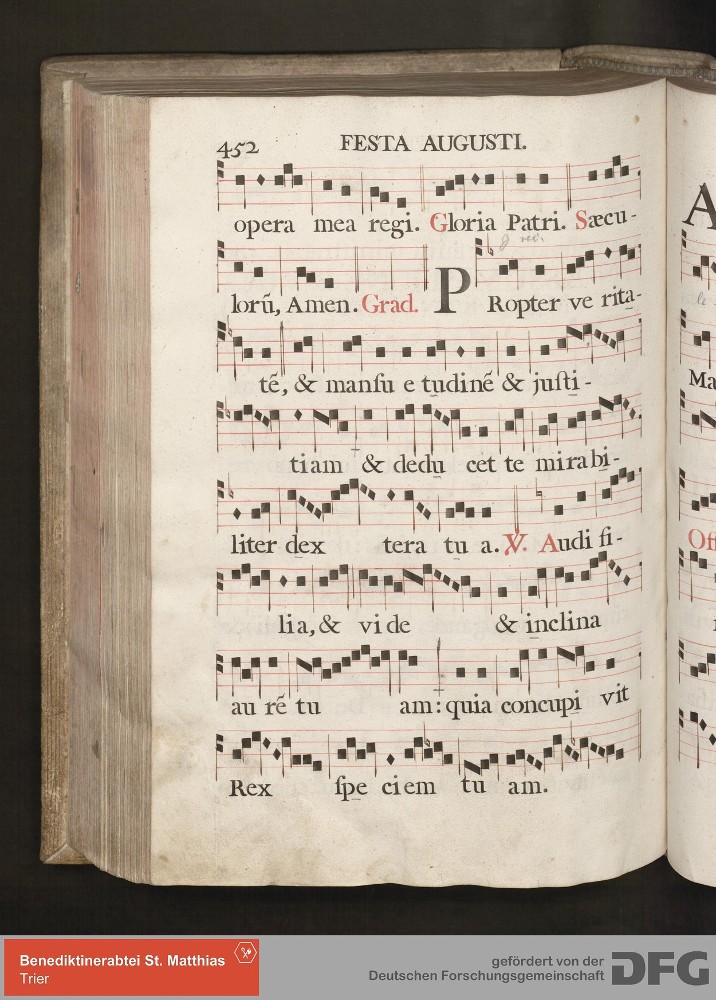 452 FESTA AUGUSTI.
opera mea regi. Gloria Patri. Sæcu-
lorũ, Amen. Grad. PRopter ve rita-
tẽ, & manſu e tudinẽ & juſti-
tiam & dedu cet te mirabi-
liter dex tera tu a. ℣. Audi fi-
lia, & vi de & inclina
au rẽ tu am: quia concupi vit
Rex ſpe ciem tu am.
Ma
Off
Benediktinerabtei St. Matthias
Trier
gefördert von der
Deutschen Forschungsgemeinschaft
DFG